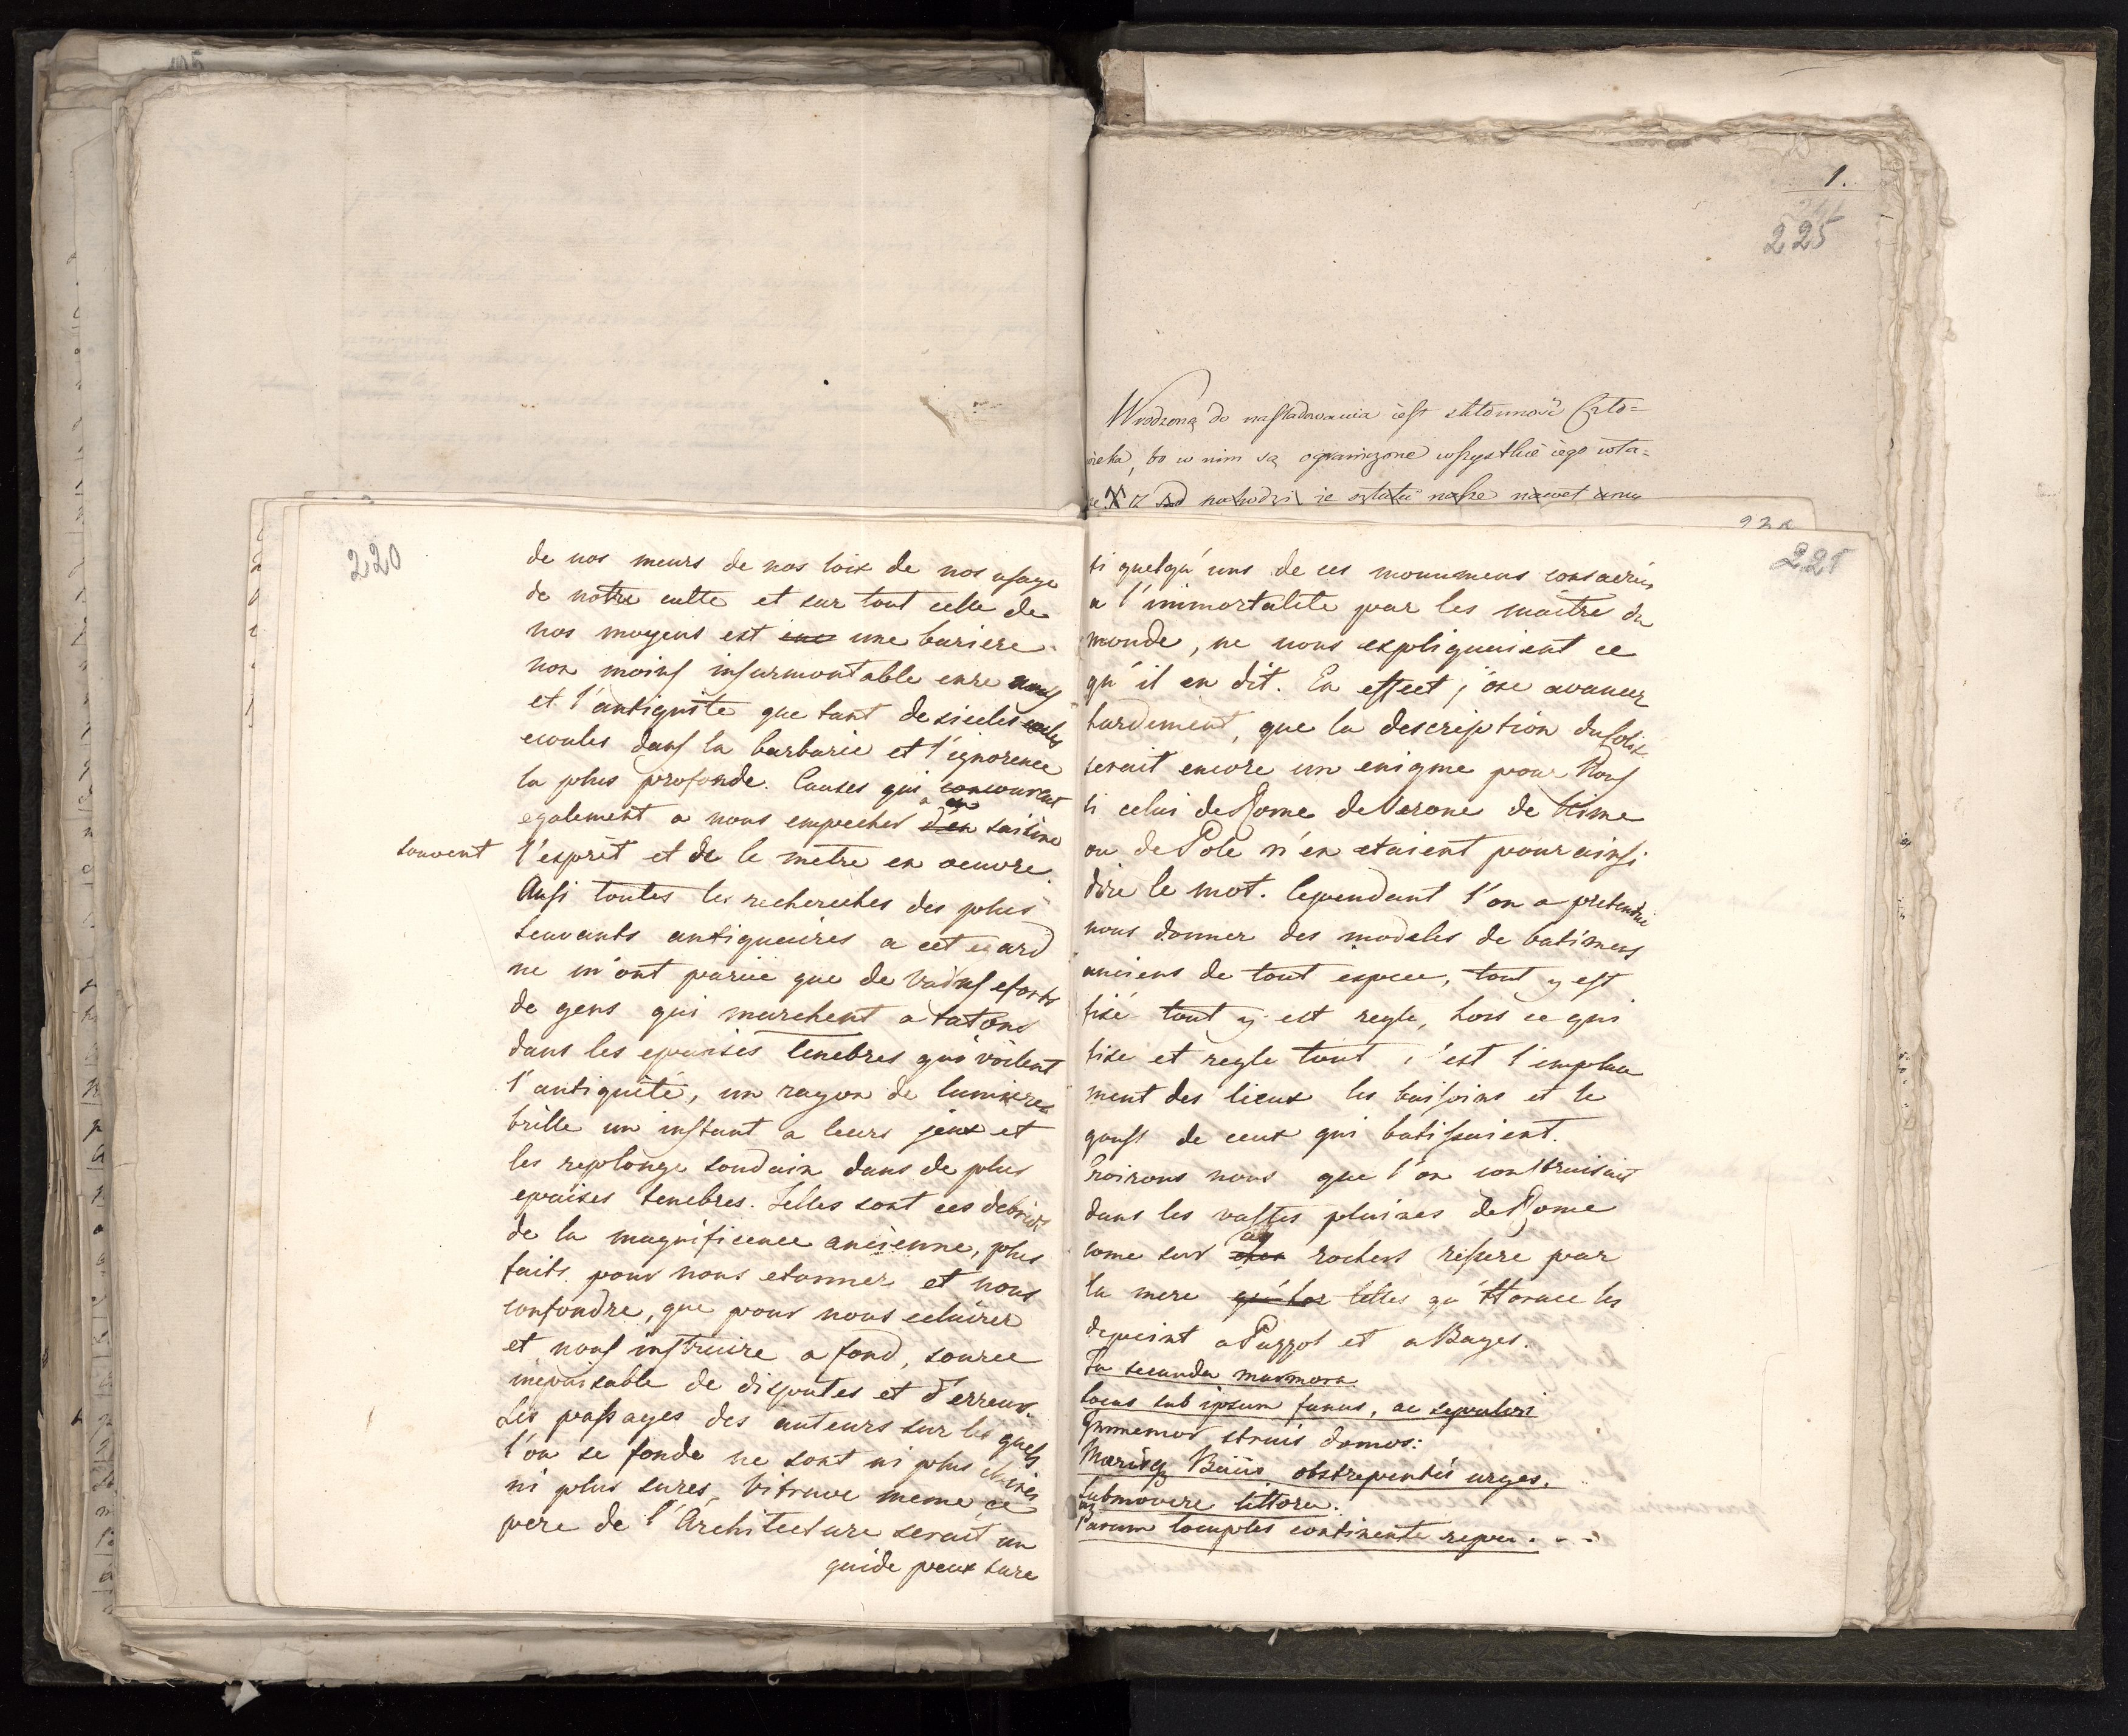 1.
225
Wrodzoną do nasladowania iest skłonność Czło=
wieka, bo w nim są ograniczone wszystkie iego wła=
220
de nos meurs de nos loix de nos usage
de notre culte et sur tout celle de
nos moyens est une bariere
non moins insurmontable enre nous
et l'antiquite que tant de siecles
ecoules dans la barbarie et l'ignorence
la plus profonde. Causes qui concourent
egalement a nous empecher d'en saisire
souvent l'esprit et de le metre en oeuvre.
Ausi toutes les recherches des plus
seavants antiquaires a cet egard
ne m'ont parüe que de vains eforts
de gens qui marchent a tatons
dans les epaises tenebres qui voilent
l'antiquité, un rayon de lumiere
brille un instant a leurs jeux et
les replonge soudain dans de plus
epaises tenebres. Telles sont ces debris
de la magnificence ancienne, plus
faits pour nous etonner et nous
confondre, que pour nous eclairer
et nous instruire a fond, source
inepuisable de disputes et d'erreur.
Les passages des auteurs sur les quels
l'on se fonde ne sont ni plus claires
ni plus sures, Vitruve meme ce
pere de l'Architecture serait un
guide peux sure
221
si quelqu'uns de ces monumens consacrés
a l'immortalite par les maitre du
monde, ne nous expliquaient ce
qu'il en dit. En effect j'ose avancer
hardement, que la description du Colis.
serait encore un enigme pour Nous
si celui de Rome de Verone de Nime
ou de Pole n'en etaient pour ainsi
dire le mot. Cependant l'on a pretendu
nous donner des modeles de batimens
anciens de tout espece, tout y est
fixé tout y est regle, hors ce qui
fixe et regle tout, c'est l'emplace
ment des lieux les baisoins et le
goust de ceux qui batissaient.
Croirons nous que l'on construisait
dans les vastes plaines de Rome
come sur des rochers resere par
la mere telles qu'Horace les
depeint a Puzzol et a Bayes.
Tu secanda marmora
locas sub ipsum funus, ac sepulcri
Immemor struis domos:
Marisq Baiis obstrepentis urges.
submovere littora.
Parum locuples continente ripa. - -